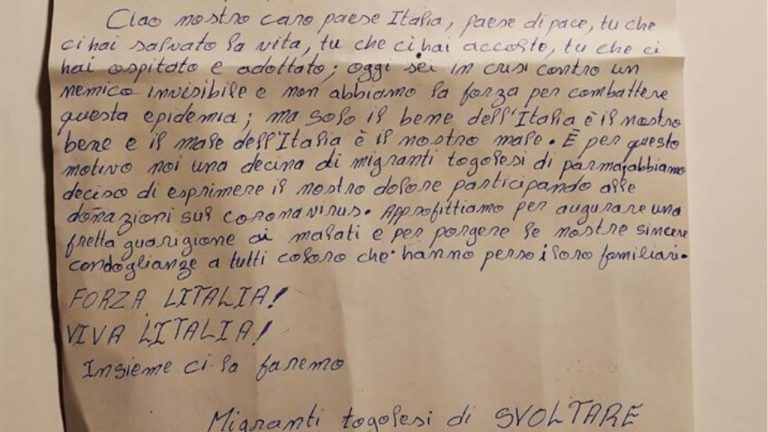 Ciao nostro caro paese Italia, paese di pace, tu che
ci hai salvato la vita, tu che ci hai accolto, tu che ci
hai ospitato e adottato; oggi sei in crisi contro un
nemico invisibile e non abbiamo la forza per combattere
questa epidemia; ma solo il bene dell'Italia è il nostro
bene e il male dell'Italia è il nostro male. È per questo
motivo noi una decina di migranti togolesi di parma, abbiamo
deciso di esprimere il nostro dolore participando alle
donazioni sul coronavirus. Approfittiamo per augurare una
fretta guarigione ai malati e per porgere le nostre sincere
condoglianze a tutti coloro che hanno perso i loro familiari.
FORZA L'ITALIA!
VIVA L'ITALIA!
Insieme ci la faremo
Migranti togolesi di SVOLTARE